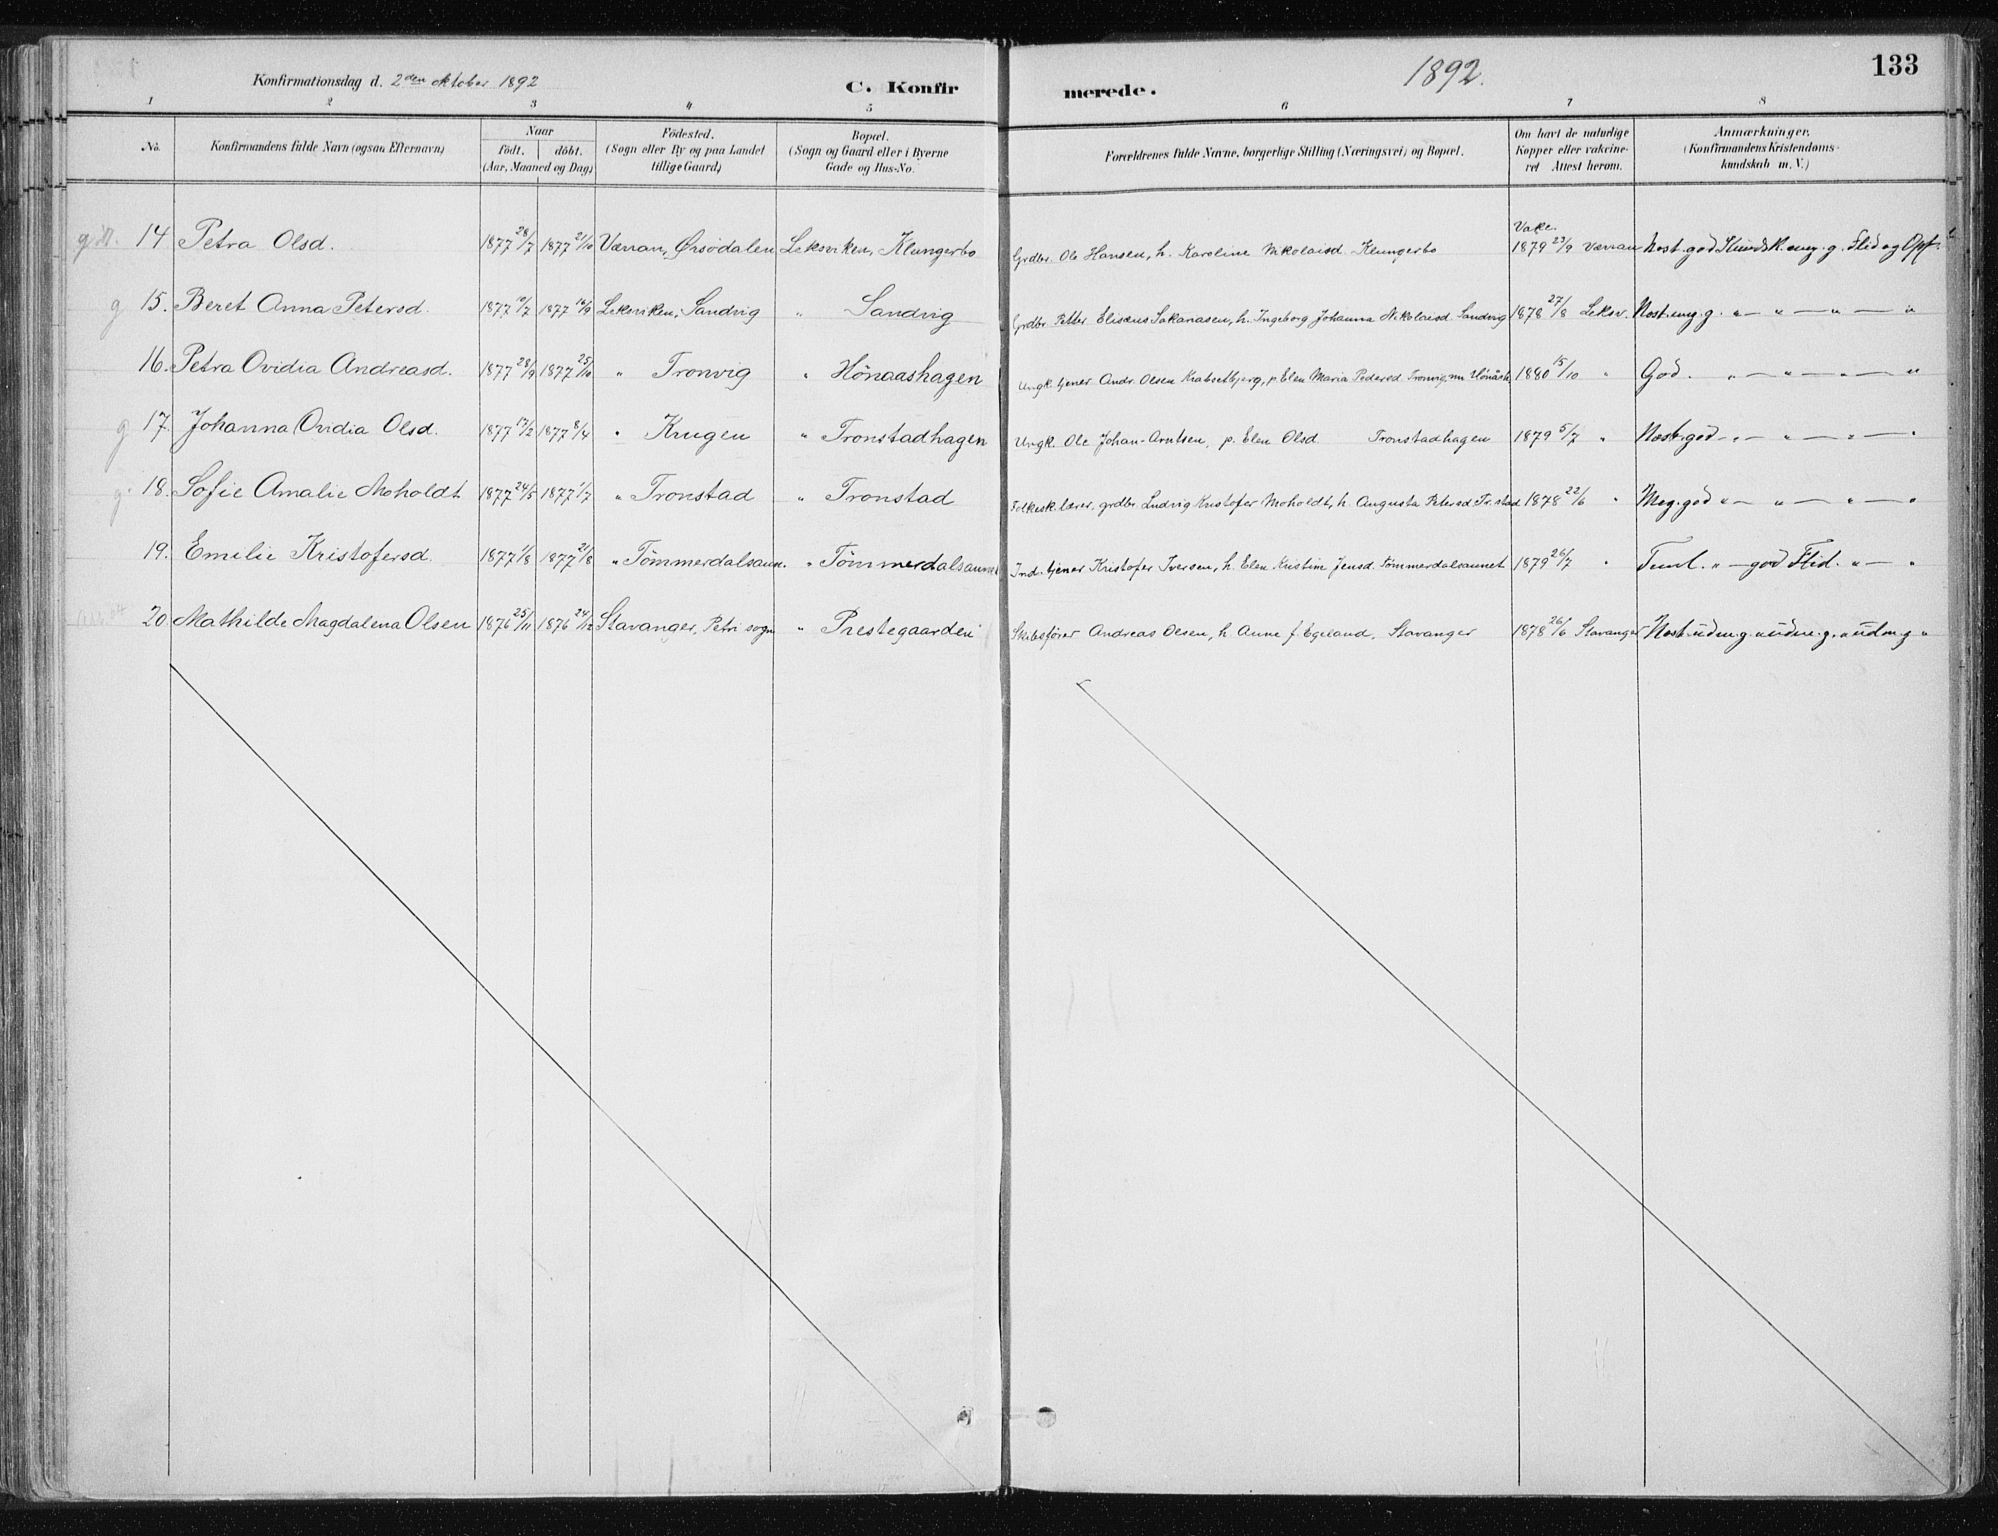 Konfirmationsdag d. 2den oktober 1892 C. Konfirmerede. 1892. 133
1 2 3 4 5 6 7 8
No. Konfirmandens fulde Navn (ogsaa Efternavn) Naar födt. döbt. (Aar, Maaned og Dag) Födested. (Sogn eller By og paa Landet tillige Gaard) Bopæl. (Sogn og Gaard eller i Byerne Gade og Hus-No. Forældrenes fulde Navne, borgerlige Stilling (Næringsvei) og Bopæl. Om havt de naturlige Kopper eller vakcineret Attest herom. Anmærkninger. (Konfirmandens Kristendomskundskab m. V.)
14 Petra Olsd. 1877 28/7 1877 21/10 Værran, Ørsödalen Leksviken, Klungerbo Grdbr. Ole Hansen, h. Karoline Nikolaisd. Klungerbo Vakc. 1879 23/9 Værran Næst. god Kundsk. meg. g. Flid og Opf.
g 15. Beret Anna Petersd. 1877 10/7 1877 16/9 Leksviken, Sandvig " Sandvig Grdbr. Petter Elisæus Sakariasen, h. Ingeborg Johanna Nikolaisd. Sandvig 1878 27/8 Leksv. Næst. meg. g. " — " — " — "
16. Petra Ovidia Andreasd. 1877 28/9 1877 25/10 " Tronvig " Hönaashagen Ungk. tjener Andr. Olsen Krabselbjerg, p. Elen Maria Pedersd. Tronvig, nu Hönåsh. 1880 15/10 " God. " — " — " — "
g 17. Johanna Ovidia Olsd. 1877 17/2 1877 8/4 " Krugen " Tronstadhagen Ungk. Ole Johan Arntsen, p. Elen Olsd. Tronstadhagen 1879 5/7 " Næst. god " — " — " — "
g. 18. Sofie Amalie Moholdt 1877 24/5 1877 1/7 " Tronstad " Tronstad Folkesk.lærer, grdbr. Ludvig Kristofer Moholdt, h. Augusta Petersd. Tr.stad 1878 22/6 " Meg. god " — " — " — "
19. Emilie Kristofersd. 1877 1/8 1877 21/8 " Tömmerdalsaun. " Tömmerdalsaunet Ind. tjener Kristofer Iversen, h. Elen Kristine Jensd. Tömmerdalsaunet 1879 26/7 " Teml. " — god Flid. " — "
20. Mathilde Magdalena Olsen 1876 25/11 1876 24/12 Stavanger, Petri sogn " Prestegaarden Skibsförer Andreas Olsen, h. Anne f. Egeland, Stavanger 1878 26/6 Stavanger Næst. udm. g. " udm. g. " udm. g "